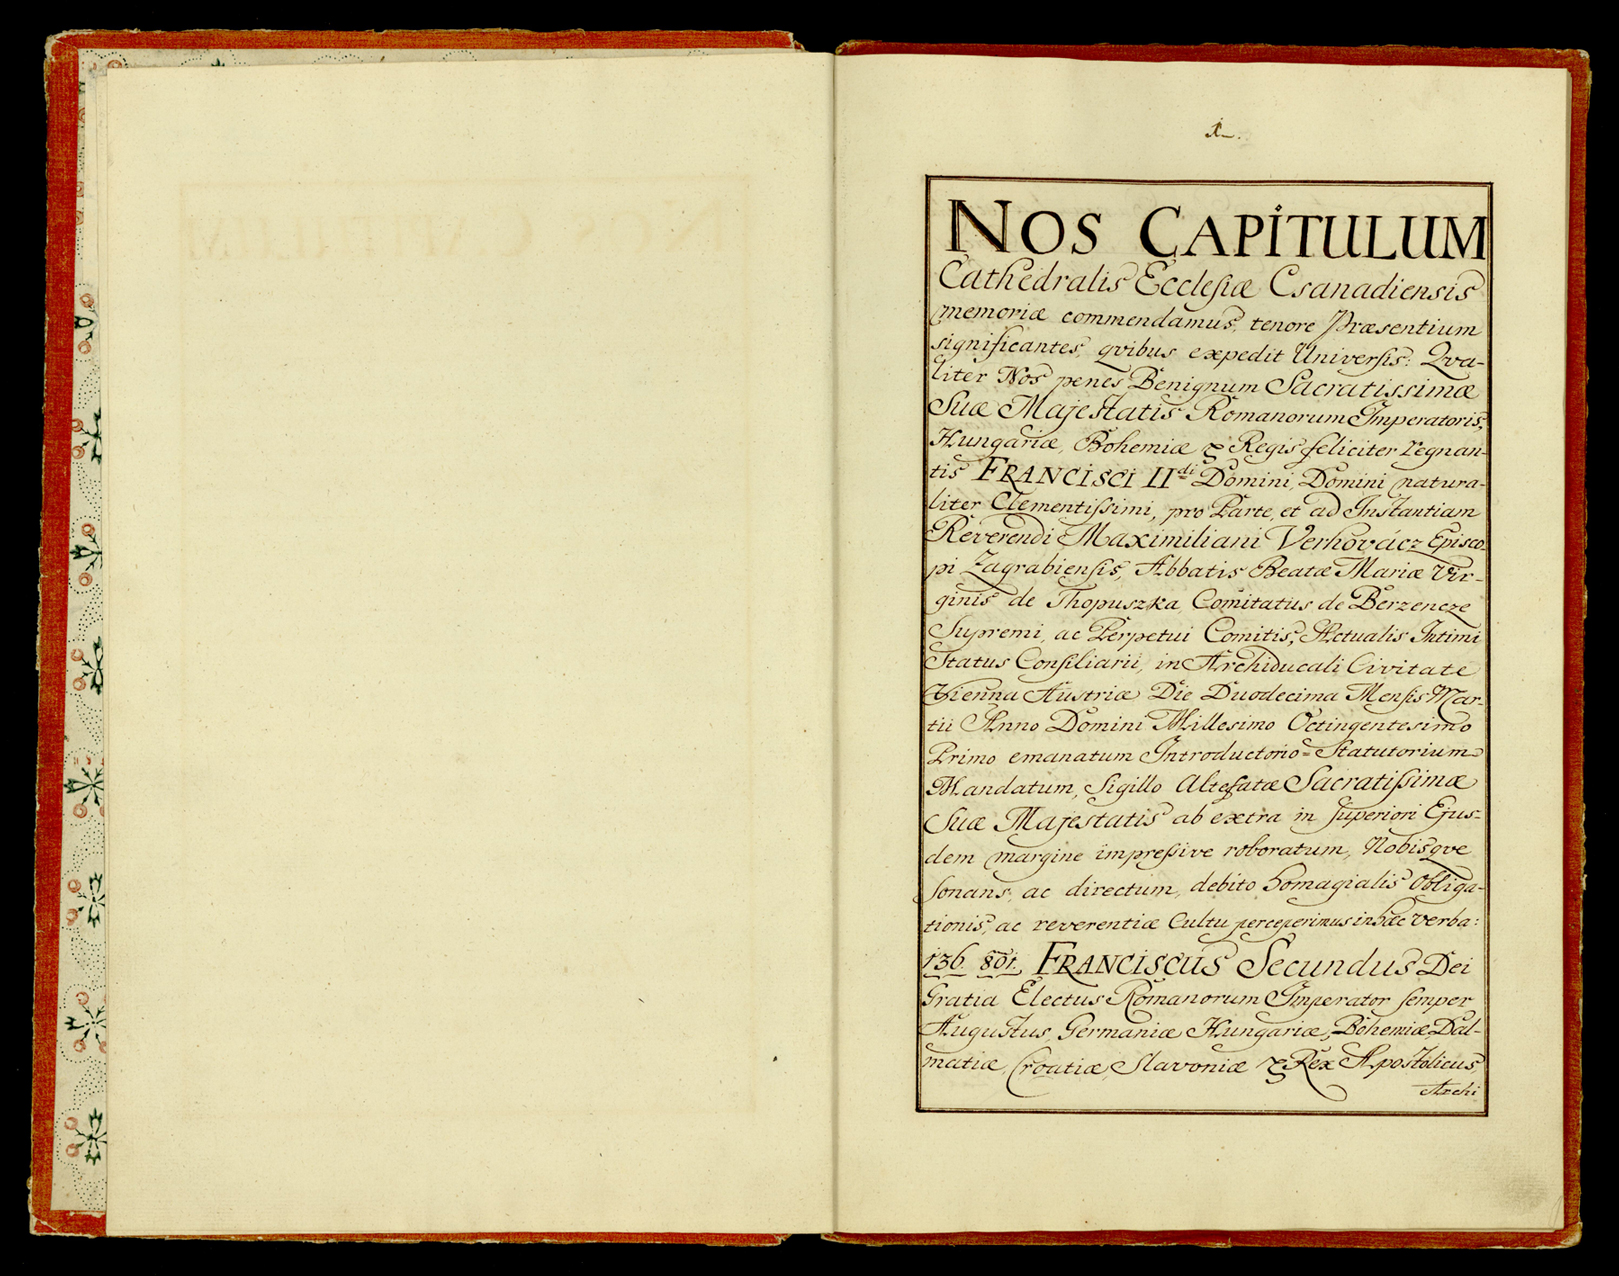 1.
NOS CAPITULUM
Cathedralis Ecclesiæ Csanadiensis
memoriæ commendamus, tenore Præsentium
significantes, qvibus expedit Universis: Qva-
liter Nos penes Benignum Sacratissimæ
Suæ Majestatis Romanorum Imperatoris,
Hungariæ, Bohemiæ & Regis feliciter regnan-
tis FRANCISCI II di Domini, Domini natura-
liter Clementissimi, pro Parte, et ad Instantiam
Reverendi Maximiliani Verhovácz Episco-
pi Zagrabiensis, Abbatis Beatæ Mariæ Vir-
ginis de Thopuszka, Comitatus de Berzencze
Supremi, ac Perpetui Comitis, Actualis Intimi
Status Consiliarii, in Archiducali Civitate
Vienna Austriæ Die Duodecima Mensis Mar-
tii Anno Domini Millesimo Octingentesimo
Primo emanatum Introductorio-Statutorium
Mandatum, Sigillo Altefatæ Sacratissimæ
Suæ Majestatis ab extra in superiori Ejus-
dem margine impressive roboratum, Nobisqve
sonans, ac directum, debito homagialis obliga-
tionis, ac reverentiæ Cultu perceperimus in hæc verba:
136. 801. FRANCISCUS Secundus Dei
Gratia Electus Romanorum Imperator semper
Augustus, Germaniæ Hungariæ, Bohemiæ, Dal-
matiæ, Croatiæ, Slavoniæ & Rex Apostolicus,
Archi